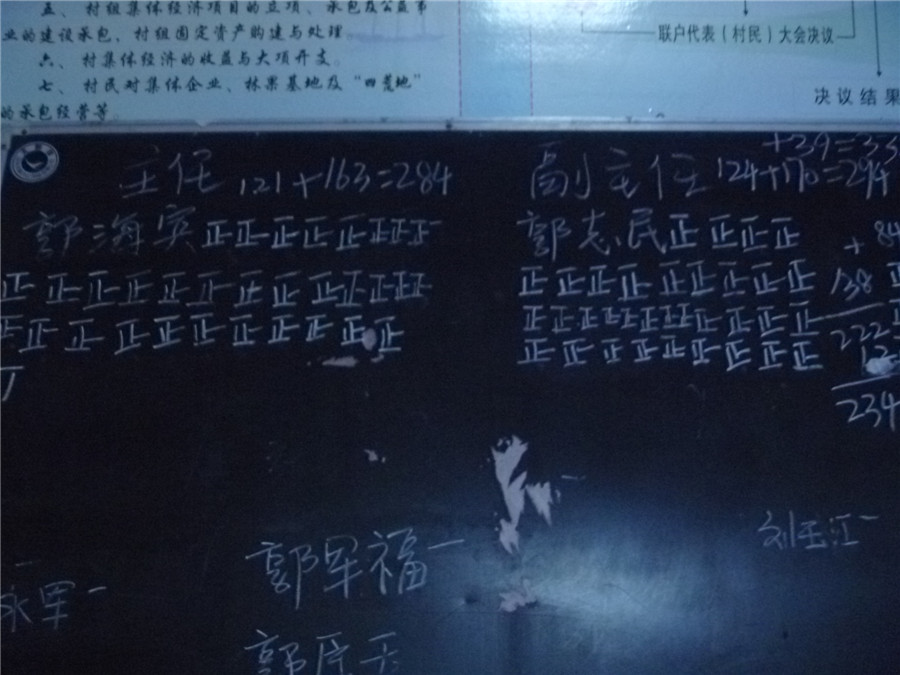 五、村组集体经济项目的立项、承包及公益事
业的建设承包、村组固定资产购建与处理
六、村集体经济的收益与大项开支。
七、村民对集体企业、林果基地及“四荒地”
的承包经营等。
联户代表（村民）大会决议
决议结果
主任 121+163=284
郭海宾正正正正正正正正
正正正正正正正正正正正正
正正正正正正正正正正正
副主任 124+170=294
+39=33
郭志民正正正正
正正正正正正正正正
正正正正正正正正正正
正正正正正正正正正
+84
138
222
12
234
郭军福一
刘玉江一
永军一